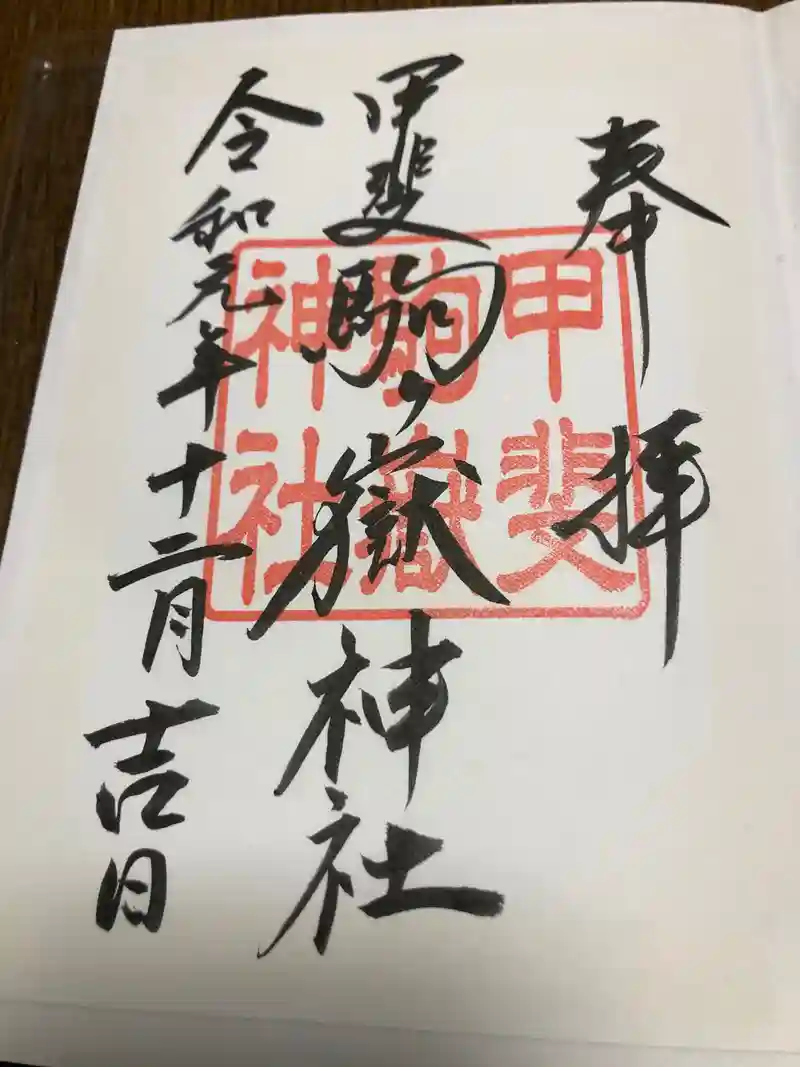 奉拝
甲斐駒ヶ嶽神社
令和元年十二月吉日
甲斐
駒嶽
神社